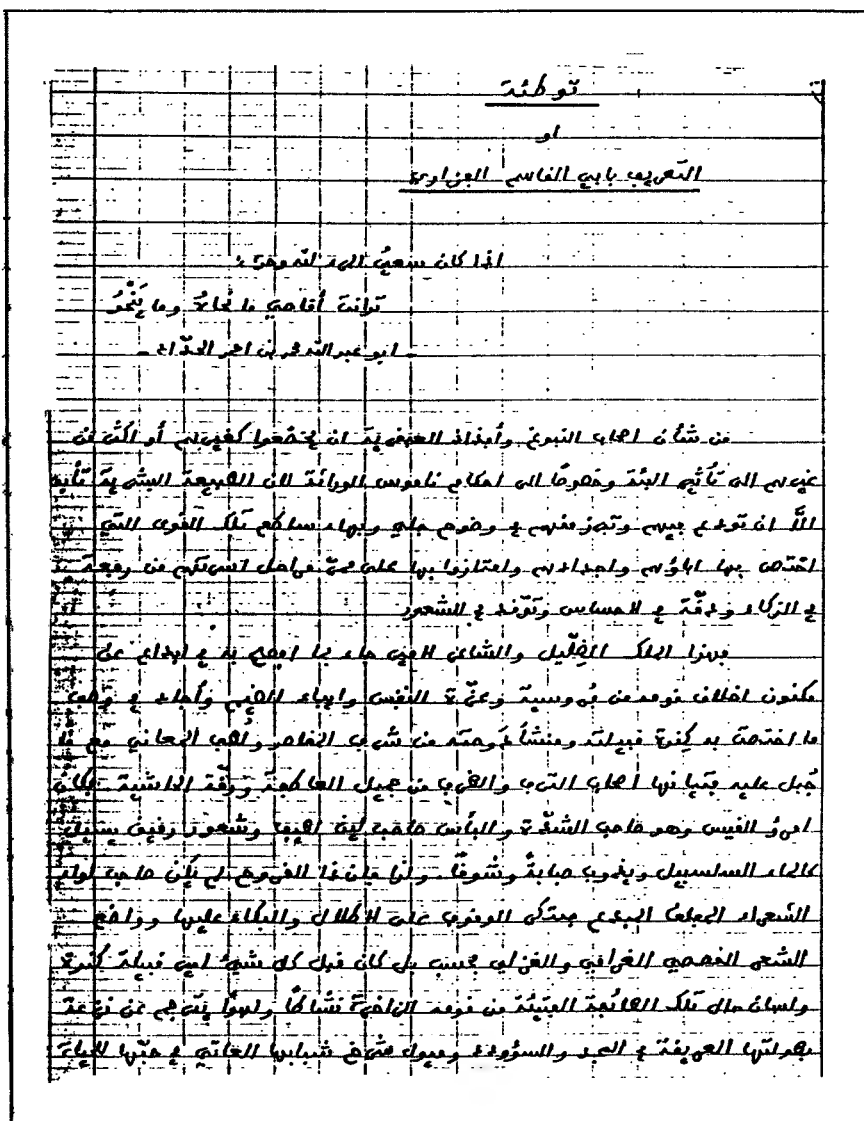 توطئة
او
التعريف بابي القاسم الفزاوي
اذا كان سعي المرء لله وحده
تدانت أقاصي ما نحاه وما ينحو
- ابو عبد الله محمد بن احمد الحداد -
من شأن اصحاب النبوغ وأفذاذ العبقرية ان يخضعوا كغيرهم أو اكثر من
غيرهم الى تأثير البيئة وخصوصًا الى احكام ناموس الوراثة لان الطبيعة البشرية تأبى
الاّ ان تودع بينهم وتبرز منهم في وضوح جلي وبهاء ساطع تلك القوى التي
اختص بها اباؤهم واجدادهم وامتازوا بها على مرّ مراحل اسرتهم من
في الذكاء ودقّة في الاحساس وتوقّد في الشعور
فهذا الملك الضلّيل والشاعر الامير جاء بما اوضح به في ابداع عن
مكنون اخلاق قومه من فروسية وعزّة النفس واباء الضيم وأجاد في وصف
ما اختصت به كندة قبيلته ومنشأ دوحته من شريف العناصر والطف المعاني مع ما
جبل عليه فتيانها اصحاب الترف والظرف من جميل العاطفة ورقّة الحاشية فكان
امرؤ القيس وهو صاحب الشدّة والبأس صاحب لين لطيف وشعور رقيق يسيل
كالماء السلسبيل ويذوب صبابةً وشوقًا. ولذا فان ذا القروح لم يكن صاحب لواء
الشعراء المجلي المبدع مبتكر الوقوف على الاطلال والبكاء عليها وواضع
الشعر القصصي الغرامي والغزلي فحسب بل كان قبل كل شيئ امير قبيلة كندة
ولسان حال تلك الطائفة الفتيّة من قومه الزاخرة نشاطًا ولهوًا يترجم عن نزعة
بطولتها العريقة في المجد والسؤدد وميول شرخ شبابها العاتي في حبّها للحياة